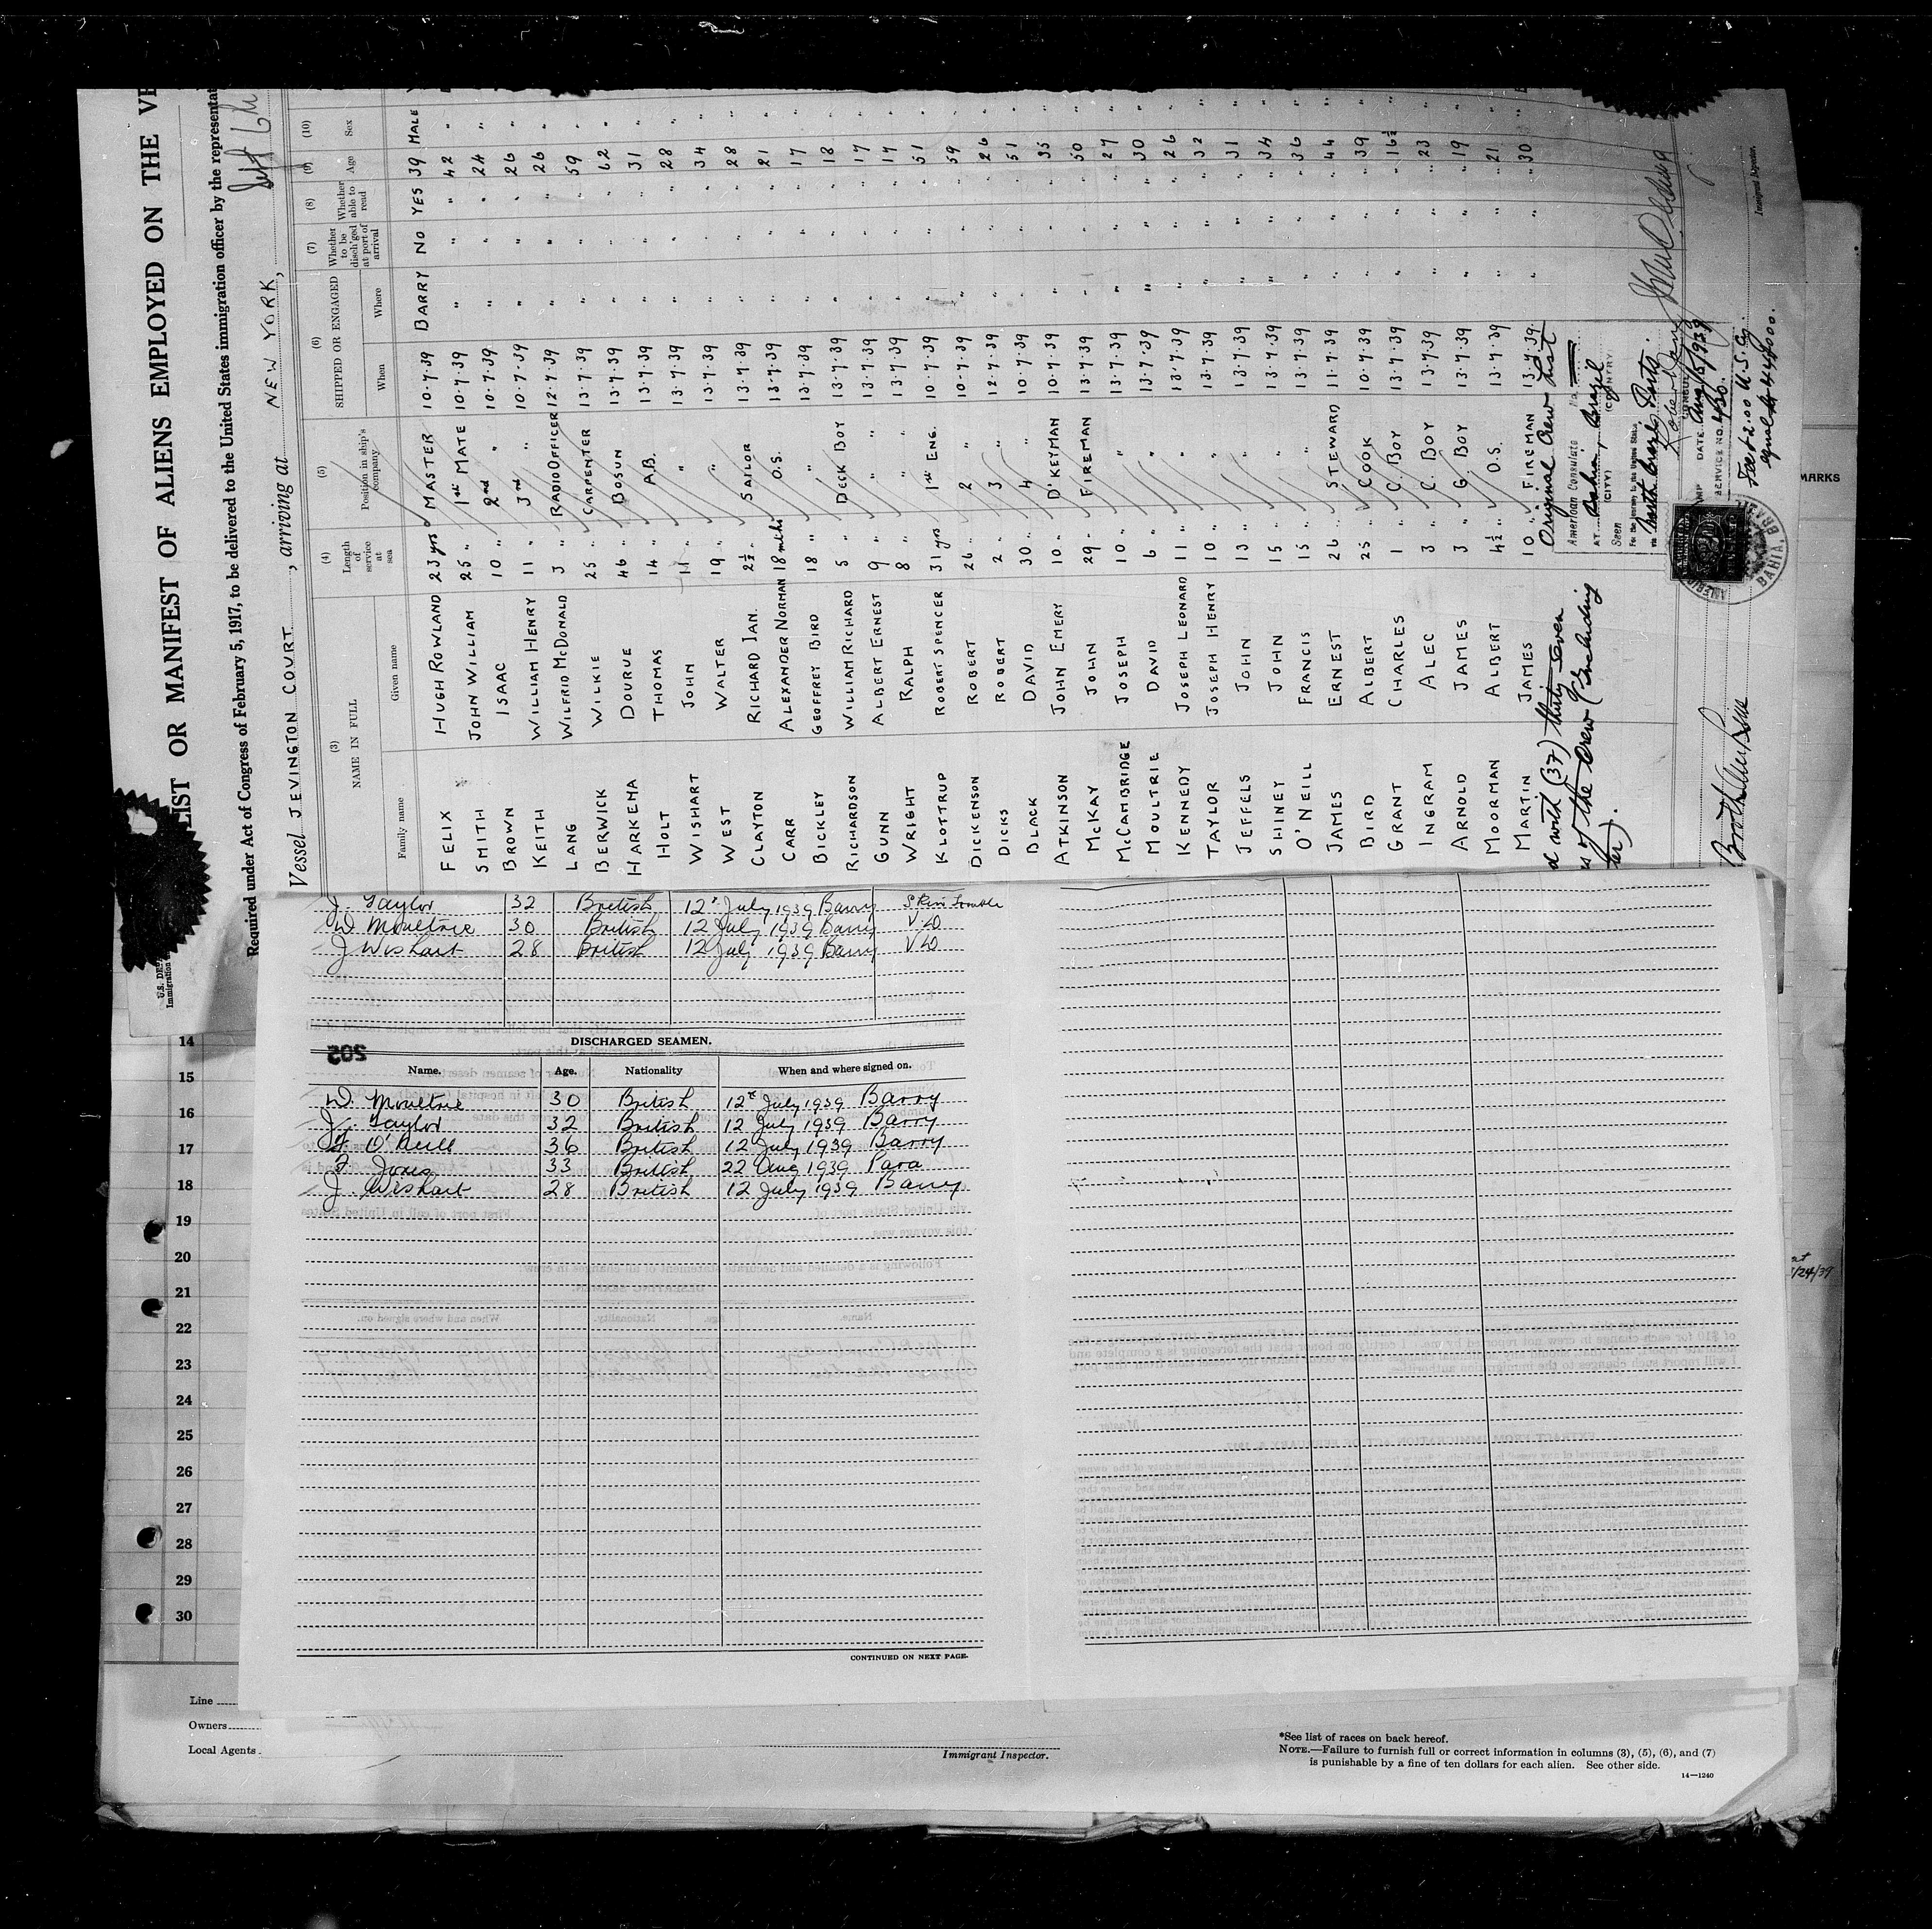 LIST OR MANIFEST OF ALIENS EMPLOYED ON THE VE
Required under Act of Congress of February 5, 1917, to be delivered to the United States immigration officer by the representat
Vessel JEVINGTON COURT, arriving at NEW YORK,
(3) (4) (5) (6) (7) (8) (9) (10)
NAME IN FULL Length of service at sea Position in ship's company SHIPPED OR ENGAGED Whether to be disch'ged at port of arrival Whether able to read Age Sex
Family name Given name When Where
FELIX HUGH ROWLAND 23 yrs MASTER 10.7.39 BARRY NO YES 39 MALE
SMITH JOHN WILLIAM 25 " 1st MATE 10.7.39 " " " 42 "
BROWN ISAAC 10 " 2nd " 10.7.39 " " " 24 "
KEITH WILLIAM HENRY 11 " 3rd " 10.7.39 " " " 26 "
LANG WILFRID McDONALD 3 " RADIO OFFICER 12.7.39 " " " 26 "
BERWICK WILKIE 25 " CARPENTER 13.7.39 " " " 59 "
HARKEMA DOURUE 46 " BOSUN 13.7.39 " " " 62 "
HOLT THOMAS 14 " A.B. 13.7.39 " " " 31 "
WISHART JOHN 11 " " 13.7.39 " " " 28 "
WEST WALTER 19 " " 13.7.39 " " " 34 "
CLAYTON RICHARD IAN. 2½ " SAILOR 13.7.39 " " " 28 "
CARR ALEXANDER NORMAN 18 mths O.S. 13.7.39 " " " 21 "
BICKLEY GEOFFREY BIRD 18 " " 13.7.39 " " " 17 "
RICHARDSON WILLIAM RICHARD 5 " DECK BOY 13.7.39 " " " 18 "
GUNN ALBERT ERNEST 9 " " " 13.7.39 " " " 17 "
WRIGHT RALPH 8 " " " 13.7.39 " " " 17 "
KLOTTRUP ROBERT SPENCER 31 yrs 1st ENG. 10.7.39 " " " 51 "
DICKENSON ROBERT 26 " 2 " 10.7.39 " " " 59 "
DICKS ROBERT 2 " 3 " 12.7.39 " " " 26 "
BLACK DAVID 30 " 4 " 10.7.39 " " " 51 "
ATKINSON JOHN EMERY 10 " D'KEYMAN 10.7.39 " " " 35 "
McKAY JOHN 29 " FIREMAN 13.7.39 " " " 50 "
McCAMBRIDGE JOSEPH 10 " " 13.7.39 " " " 27 "
MOULTRIE DAVID 6 " " 13.7.39 " " " 30 "
KENNEDY JOSEPH LEONARD 11 " " 13.7.39 " " " 26 "
TAYLOR JOSEPH HENRY 10 " " 13.7.39 " " " 32 "
JEFFELS JOHN 13 " " 13.7.39 " " " 31 "
SHINEY JOHN 15 " " 13.7.39 " " " 34 "
O'NEILL FRANCIS 15 " " 13.7.39 " " " 36 "
JAMES ERNEST 26 " STEWARD 11.7.39 " " " 44 "
BIRD ALBERT 25 " COOK 10.7.39 " " " 39 "
GRANT CHARLES 1 " C. BOY 13.7.39 " " " 16½ "
INGRAM ALEC 3 " C. BOY 13.7.39 " " " 23 "
ARNOLD JAMES 3 " G. BOY 13.7.39 " " " 19 "
MOORMAN ALBERT 4½ " O.S. 13.7.39 " " " 21 "
MARTIN JAMES 10 " FIREMAN 13.7.39 " " " 30 "
d with (37) thirty seven Original Crew List
s of the crew (Including
er).
American Consulate No.
AT Bahia, Brazil
(CITY) (COUNTRY)
Seen
For the journey to the United States
via North Brazil Ports.
DATE Aug/5/1939
SERVICE NO. 430.
Fee $2.00 U.S. Cy.
equal to 44$000.
BAHIA, BRAZIL
Immigrant Inspector.
J. Taylor 32 British 12 July 1939 Barry Skin Trouble
D. Moultrie 30 British 12 July 1939 Barry V.D
J Wishart 28 British 12 July 1939 Barry V D
DISCHARGED SEAMEN.
Name. Age. Nationality When and where signed on.
D. Moultrie 30 British 12th July 1939 Barry
J. Taylor 32 British 12 July 1939 Barry
F. O'Neill 36 British 12 July 1939 Barry
F. Jones 33 British 22 Aug 1939 Para
J. Wishart 28 British 12 July 1939 Barry
CONTINUED ON NEXT PAGE.
14
15
16
17
18
19
20
21
22
23
24
25
26
27
28
29
30
MARKS
/24/39
Line
Owners
Local Agents
Immigrant Inspector.
*See list of races on back hereof.
NOTE.—Failure to furnish full or correct information in columns (3), (5), (6), and (7)
is punishable by a fine of ten dollars for each alien. See other side.
14—1240